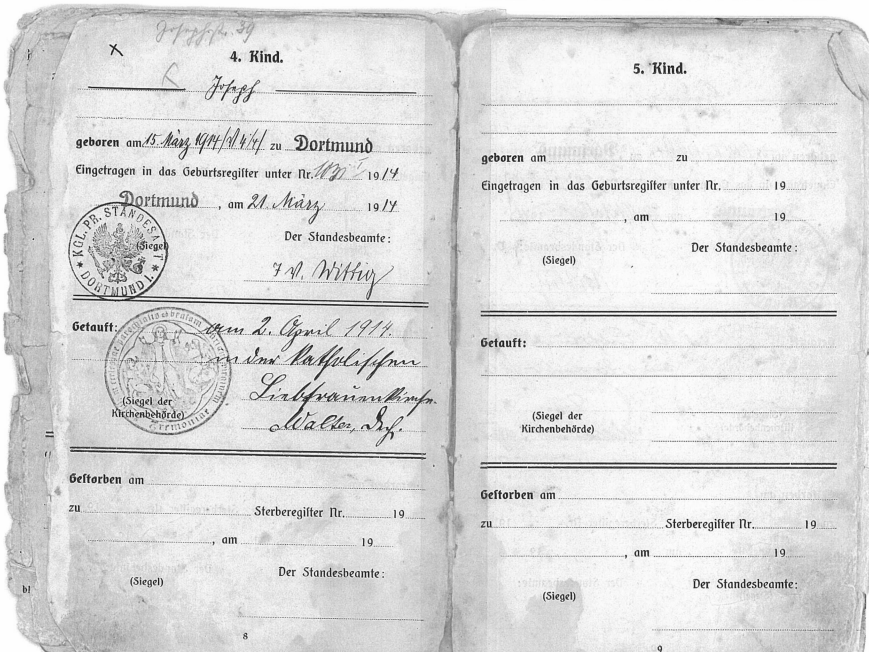 Josephstr. 39
4. Kind.
Joseph
geboren am 15. März 1914 zu Dortmund
Eingetragen in das Geburtsregister unter Nr. 1914
Dortmund, am 21. März 1914
KGL. PR. STANDESAMT
DORTMUND I.
(Siegel)
Der Standesbeamte:
Wittig
Getauft: am 2. April 1914.
in der katholischen
Liebfrauenkirche.
Walter, Dech.
(Siegel der
Kirchenbehörde)
Tremoniae
Gestorben am
zu Sterberegister Nr. 19
, am 19
(Siegel)
Der Standesbeamte:
8
5. Kind.
geboren am zu
Eingetragen in das Geburtsregister unter Nr. 19
, am 19
(Siegel)
Der Standesbeamte:
Getauft:
(Siegel der
Kirchenbehörde)
Gestorben am
zu Sterberegister Nr. 19
, am 19
(Siegel)
Der Standesbeamte:
9